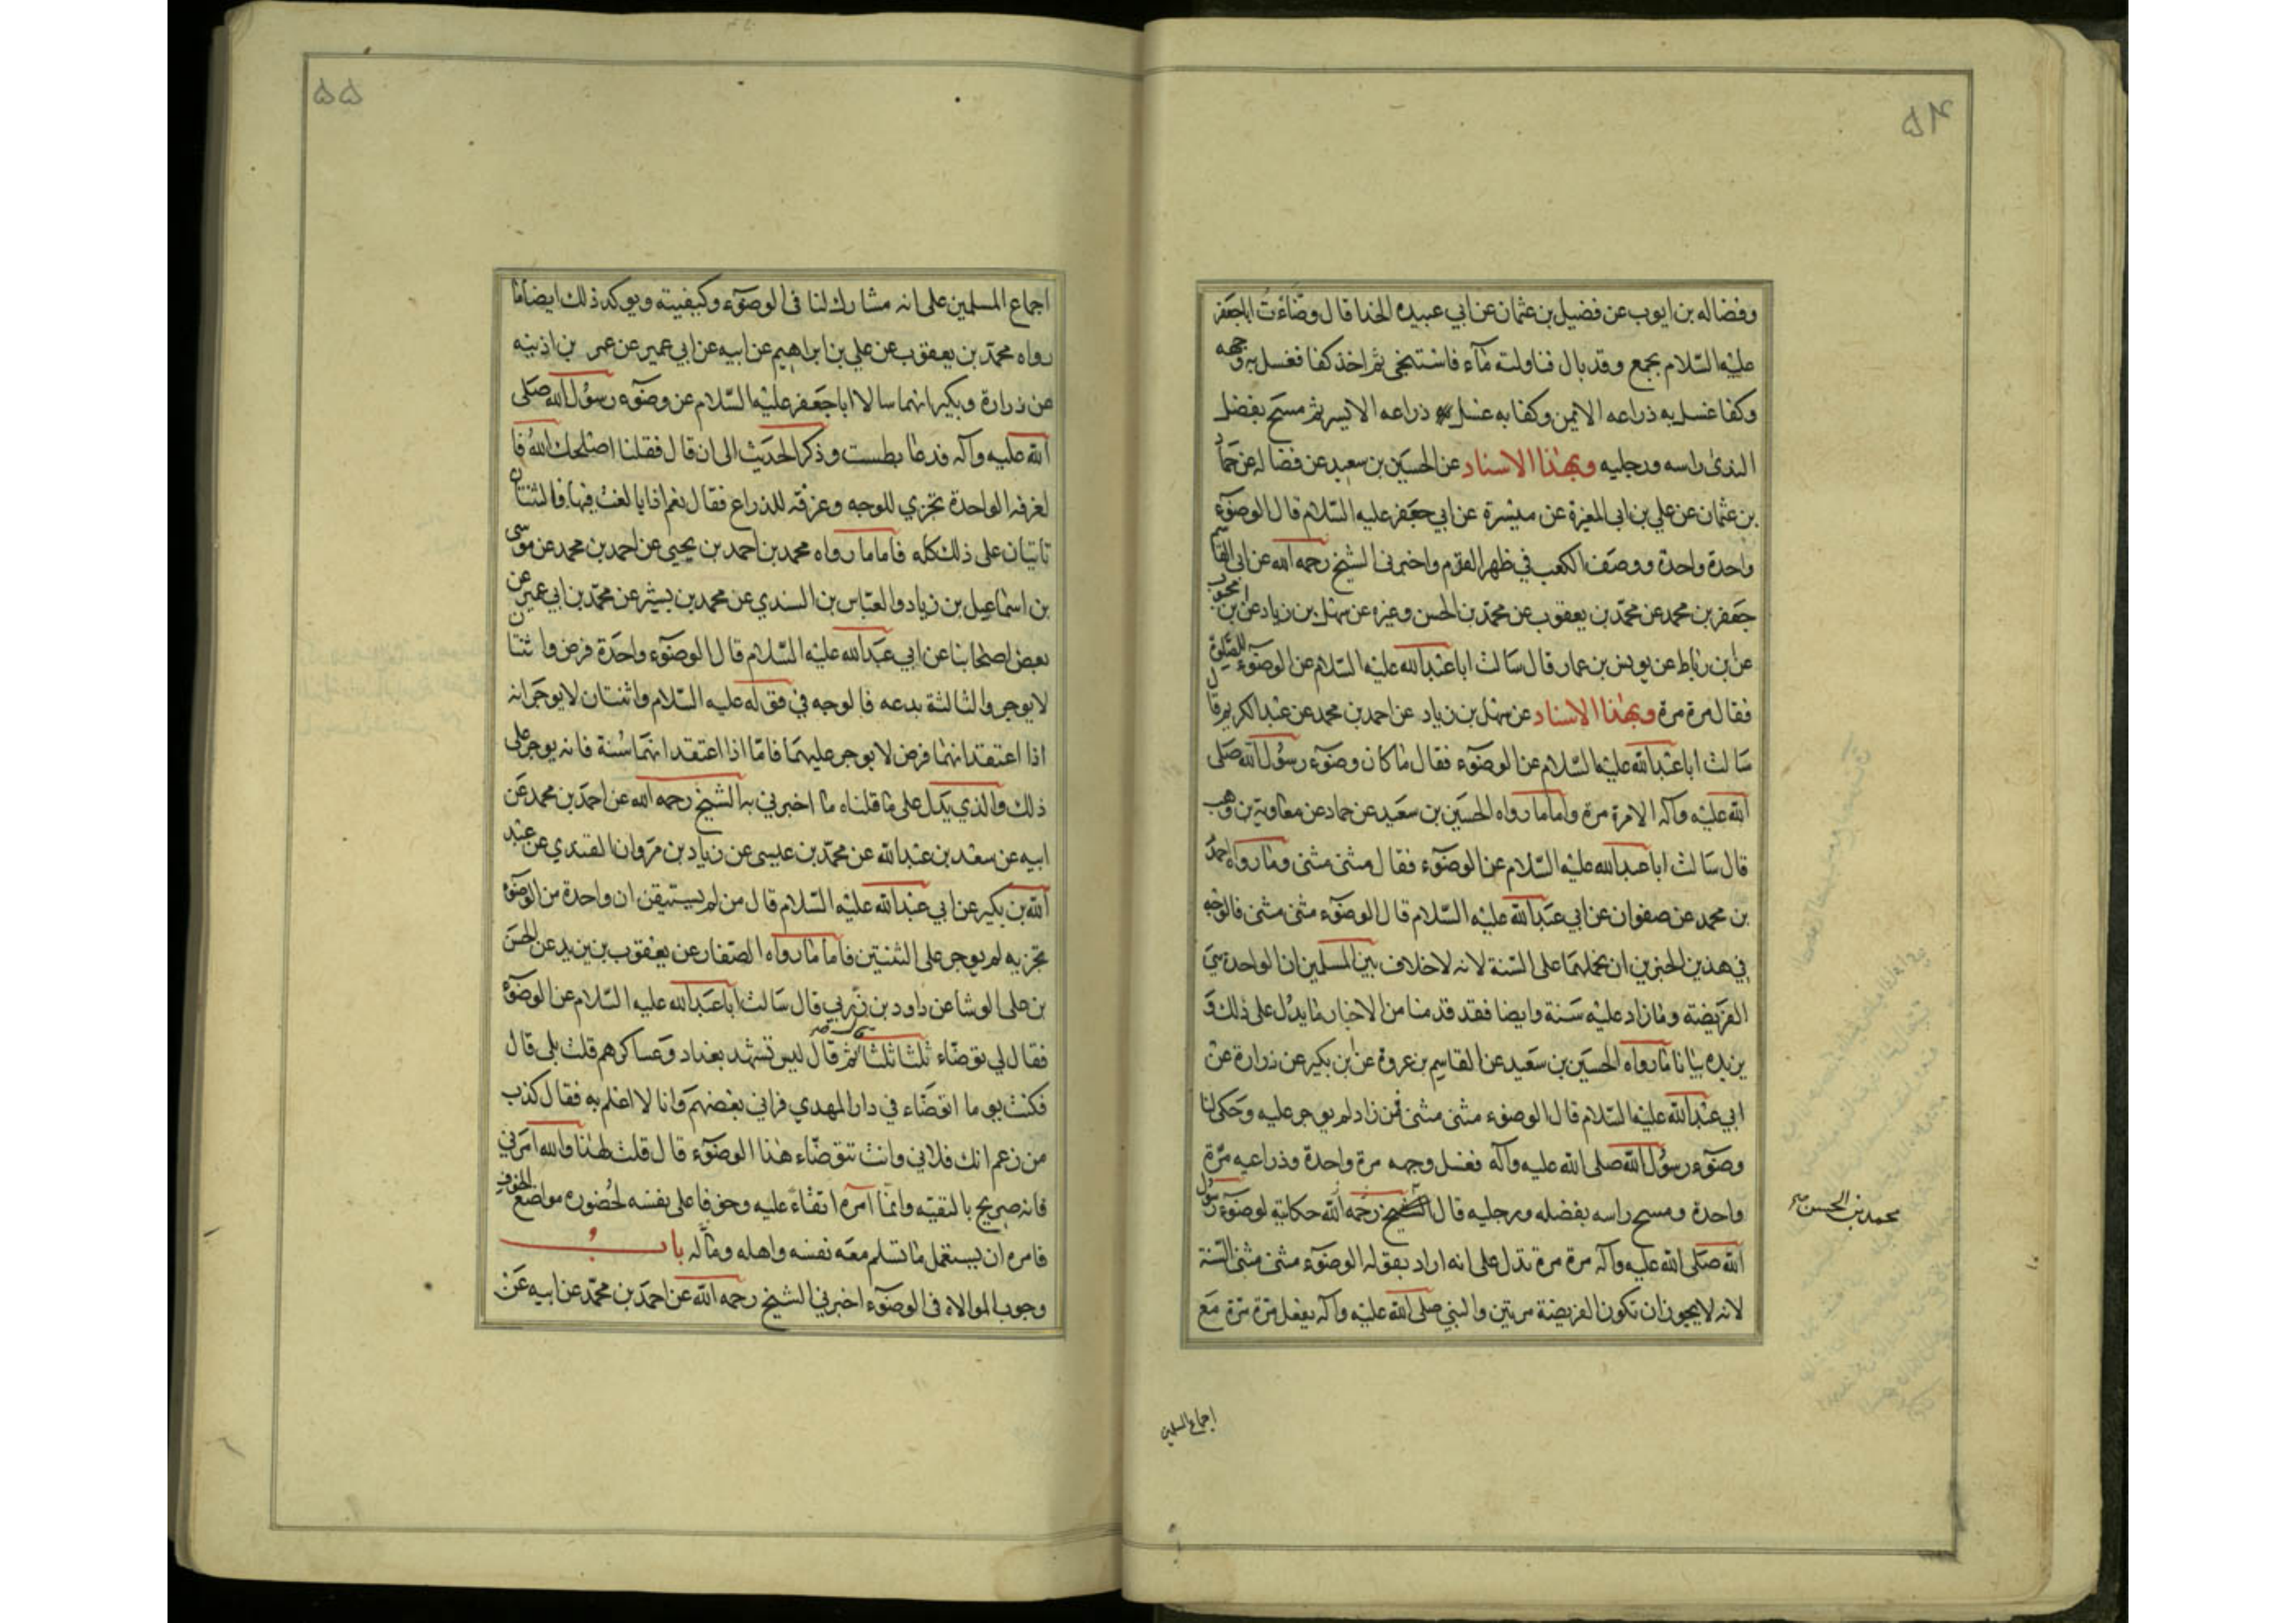 ٥٤
وفضاله بن ايوب عن فضيل بن عثمان عن ابي عبيده الحذا قال وضاءت اباجعفر
عليه السلام بجمع وقد بال فناولته مآء فاستنجى ثم اخذ كفا فغسل به وجهه
وكفا غسل به ذراعه الايمن وكفا به غسل ذراعه الايسر ثم مسح بفضل
الندى راسه ورجليه وبهذا الاسناد عن الحسين بن سعيد عن فضاله عن حماد
بن عثمان عن علي بن ابى المغيرة عن ميسرة عن ابي جعفر عليه السلام قال الوضوء
واحدة واحدة ووصف الكعب في ظهر القدم واخبرنى الشيخ رحمه الله عن ابى القاسم
جعفر بن محمد عن محمد بن يعقوب عن محمد بن الحسن وغيره عن سهل بن زياد عن بن محبوب
عن بن رباط عن يونس بن عمار قال سالت اباعبدالله عليه السلام عن الوضوء للصلوة
فقال مرة مرة وبهذا الاسناد عن سهل بن زياد عن احمد بن محمد عن عبدالكريم قال
سالت اباعبدالله عليه السلام عن الوضوء فقال ما كان وضوء رسول الله صلى
الله عليه وآله الا مرة مرة واما ما رواه الحسين بن سعيد عن حماد عن معاوية بن وهب
قال سالت اباعبدالله عليه السلام عن الوضوء فقال مثنى مثنى وما رواه احمد
بن محمد عن صفوان عن ابي عبدالله عليه السلام قال الوضوء مثنى مثنى فالوجه
في هذين الخبرين ان نحملهما على السنة لانه لا خلاف بين المسلمين ان الواحدة هي
الفريضة وما زاد عليه سنة وايضا فقد قدمنا من الاخبار ما يدل على ذلك و
يزيده بيانا ما رواه الحسين بن سعيد عن القاسم بن عروة عن بن بكير عن زرارة عن
ابي عبدالله عليه السلام قال الوضوء مثنى مثنى فمن زاد لم يوجر عليه وحكى لنا
وضوء رسول الله صلى الله عليه وآله فغسل وجهه مرة واحدة وذراعيه مرة
واحدة ومسح راسه بفضله ورجليه قال الشيخ رحمه الله حكاية لوضوء رسول
الله صلى الله عليه وآله مرة مرة تدل على انه اراد بقوله الوضوء مثنى مثنى السنة
لانه لا يجوز ان تكون الفريضة مرتين والنبي صلى الله عليه وآله يفعل مرة مرة مع
محمد بن الحسن
اجماع المسلمين
٥٥
اجماع المسلمين على انه مشارك لنا فى الوضوء وكيفيته ويوكد ذلك ايضا ما
رواه محمد بن يعقوب عن علي بن ابراهيم عن ابيه عن ابي عمير عن عمر بن اذينه
عن زرارة وبكير انهما سالا اباجعفر عليه السلام عن وضوء رسول الله صلى
الله عليه وآله فدعا بطست وذكر الحديث الى ان قال فقلنا اصلحك الله فا
لغرفه الواحدة تجزي للوجه وغرفه للذراع فقال نعم اذا بالغت فيها فالثنتان
تاتيان على ذلك كله فاما ما رواه محمد بن احمد بن يحيى عن احمد بن محمد عن موسى
بن اسماعيل بن زياد والعباس بن السندي عن محمد بن بشير عن محمد بن ابي عمير عن
بعض اصحابنا عن ابي عبدالله عليه السلام قال الوضوء واحدة فرض واثنتان
لا يوجر والثالثة بدعه فالوجه في قوله عليه السلام واثنتان لا يوجر انه
اذا اعتقد انهما فرض لا يوجر عليهما فاما اذا اعتقد انهما سنة فانه يوجر على
ذلك والذي يدل على ما قلناه ما اخبرني به الشيخ رحمه الله عن احمد بن محمد عن
ابيه عن سعد بن عبدالله عن محمد بن عيسى عن زياد بن مروان القندي عن عبد
الله بن بكير عن ابي عبدالله عليه السلام قال من لم يستيقن ان واحدة من الوضوء
تجزيه لم يوجر على الثنتين فاما ما رواه الصفار عن يعقوب بن يزيد عن الحسن
بن على الوشا عن داود بن زربي قال سالت اباعبدالله عليه السلام عن الوضوء
فقال لي توضاء ثلثا ثلثا ثم قال ليس تشهد بغداد وعساكرهم قلت بلى قال
فكنت يوما اتوضاء في دار المهدي فراني بعضهم وانا لا اعلم به فقال كذب
من زعم انك فلاني وانت تتوضاء هذا الوضوء قال قلت لهذا والله امرني
فانه صريح بالتقيته وانما امره اتقاء عليه وخوفا على نفسه لحضوره مواضع الخوف
فامره ان يستعمل ما تسلم معه نفسه واهله وماله باب
وجوب الموالاه فى الوضوء اخبرني الشيخ رحمه الله عن احمد بن محمد عن ابيه عن